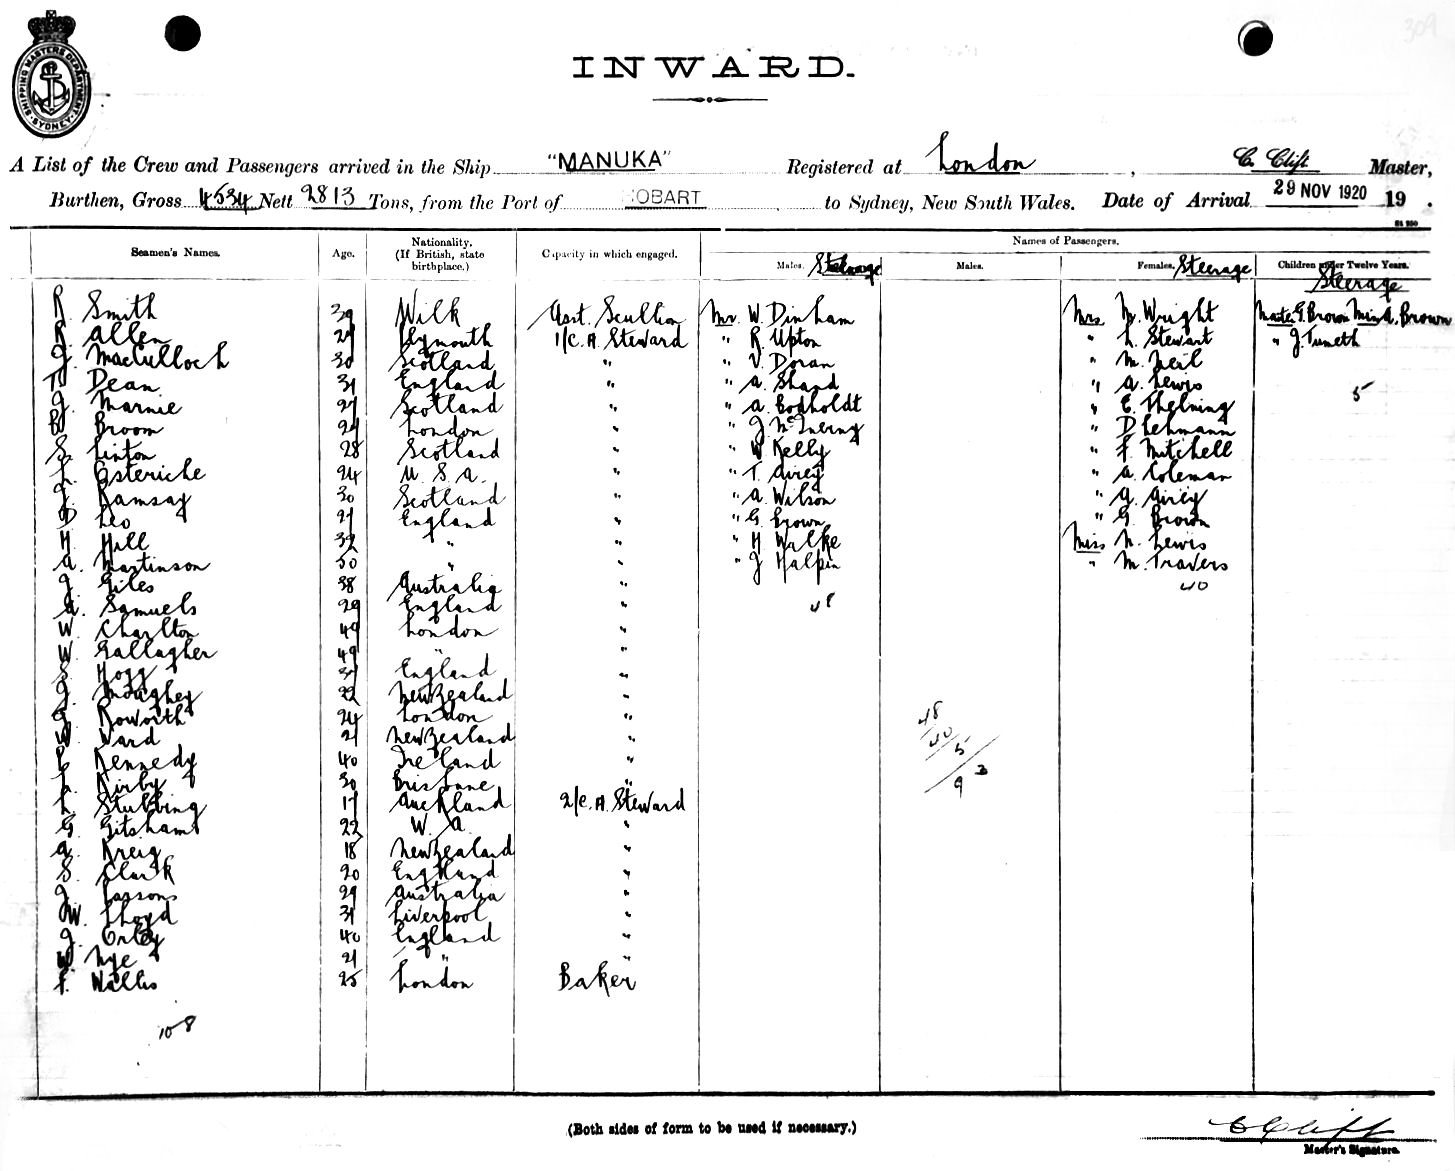 309
SHIPPING MASTERS DEPARTMENT
SYDNEY
INWARD.
A List of the Crew and Passengers arrived in the Ship "MANUKA" Registered at London, C. Clift Master,
Burthen, Gross 4534 Nett 2813 Tons, from the Port of HOBART to Sydney, New South Wales. Date of Arrival 29 NOV 1920 19 .
Seamen's Names. Age. Nationality. (If British, state birthplace.) Capacity in which engaged. Names of Passengers.
Males. Steerage Males. Females. Steerage Children under Twelve Years. Steerage
R Smith 39 Wilk Asst. Scullion Mr. W Dinham Mrs. M. Wright Master G Brown Miss A. Brown
R Allen 29 Plymouth 1/C. A. Steward " R Upton " L. Stewart " J.
J. MacCulloch 30 Scotland " " V. Doran " M. Neil
Dean 31 England " " A. Shand " A. Lewis 5
J. Marnie 27 Scotland " " A. Bodholdt " E. Thelning
B Broom 29 London " " J " D Lehmann
S. Linton 28 Scotland " " W Kelly " F. Mitchell
L. Esteriche 24 U. S. A. " " T. Airey " A. Coleman
J. Ramsay 30 Scotland " " A. Wilson " A. Airey
D Leo 21 England " " G. Brown " G. Brown
H Hill 32 " " " H Walke Miss N. Lewis
A. Martinson 50 " " " J Halpin " M. Travers
J. Giles 38 Australia " 48 40
A. Samuels 29 England "
W. Charlton 49 London "
W. Gallagher 49 " "
S. Hogg 31 England "
J. Moughey 22 New Zealand "
G. Roworth 24 London " 48
W Ward 21 New Zealand " 40
P. Kennedy 40 Ireland " 5
L. Kirby 30 Brisbane " 93
L. Stubbing 17 Auckland 2/C. A. Steward
G. Gitsham 22 W. A. "
A. Kreig 18 New Zealand "
S. Clark 20 England "
J. Parsons 29 Australia "
W. Lloyd 31 Liverpool "
J. Orley 40 England "
W Nye 21 " "
F. Wallis 25 London Baker
108
(Both sides of form to be used if necessary.)
C Clift
Master's Signature.